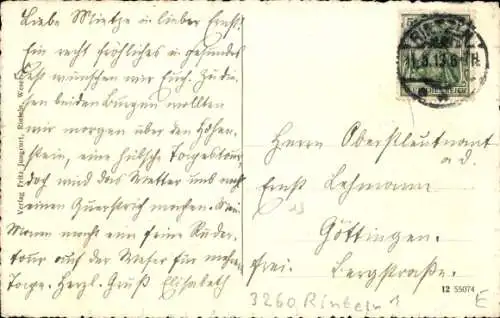 Liebe Mietze u. lieber Ernst!
Ein recht fröhliches u. gesundes
Fest wünschen wir Euch. Zu die-
sen beiden Burgen wollten
wir morgen über den Hohen-
stein, eine hübsche Tagestour
doch wird das Wetter uns wohl
einen Querstrich machen.
Mann macht eine feine Ruder-
tour auf der Weser für mehrere
Tage. Herzl. Gruß Elisabeth
Verlag Fritz Jungnet, Rinteln, Weser
5
11.5.13.6-7N.
DEUTSCHES REICH
Herrn Oberstleutnant
a. d.
Ernst Lehmann
13
Göttingen.
frei. Bergstraße.
12 55074
3260 Rinteln 1
E